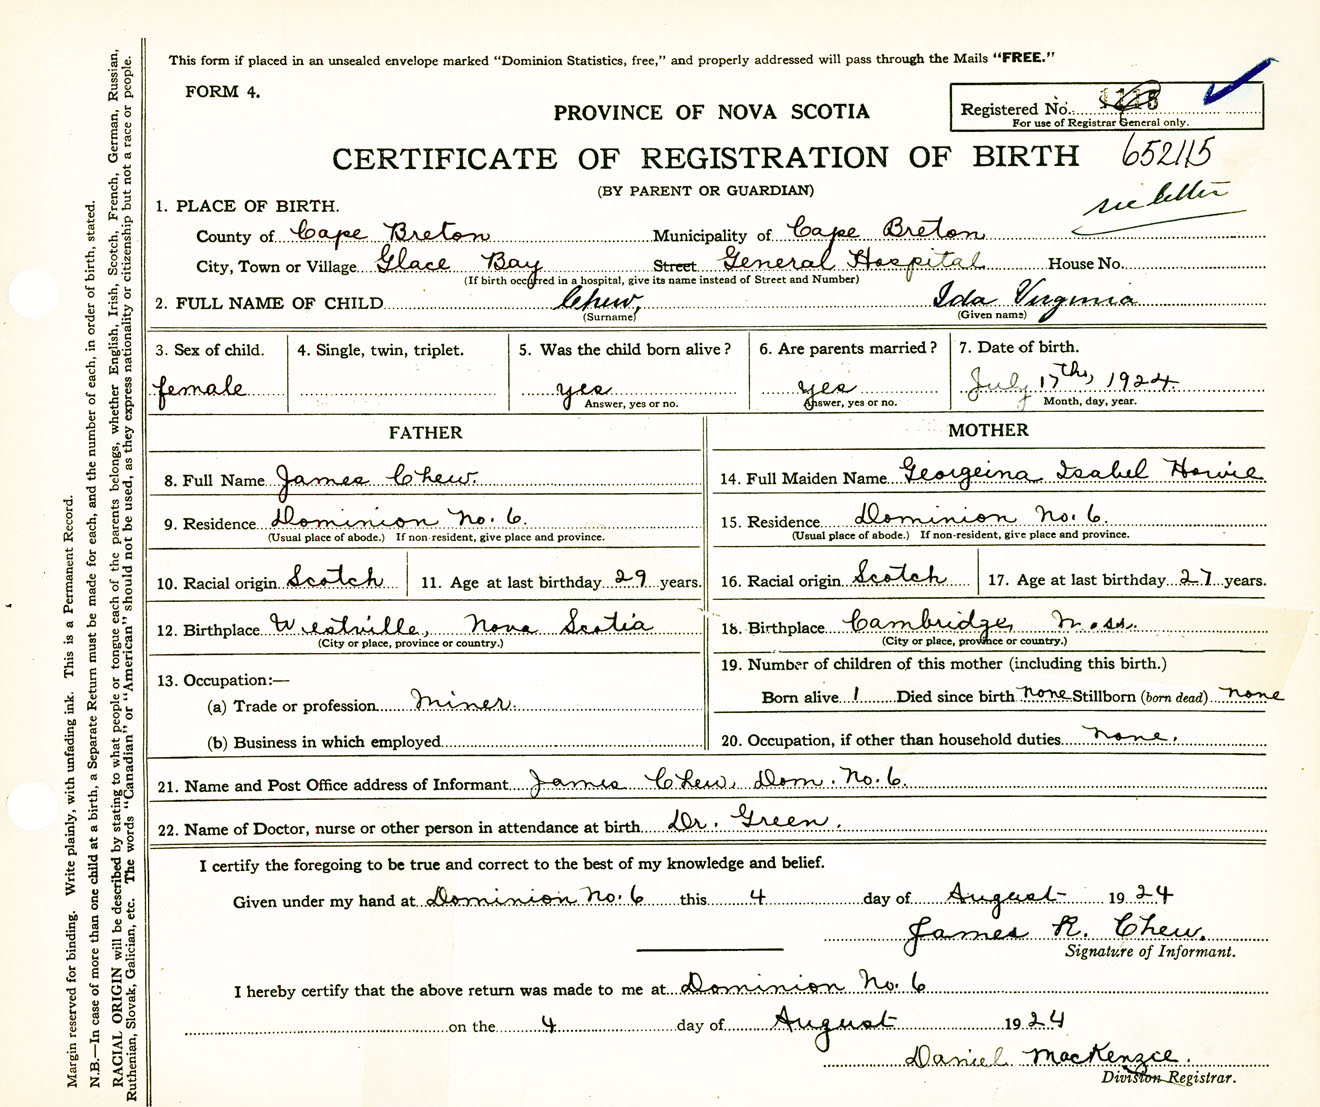 This form if placed in an unsealed envelope marked "Dominion Statistics, free," and properly addressed will pass through the Mails "FREE."
FORM 4.
PROVINCE OF NOVA SCOTIA
Registered No.
For use of Registrar General only.
CERTIFICATE OF REGISTRATION OF BIRTH 652115
(BY PARENT OR GUARDIAN)
see letter
1. PLACE OF BIRTH.
County of Cape Breton Municipality of Cape Breton
City, Town or Village Glace Bay Street General Hospital House No.
(If birth occurred in a hospital, give its name instead of Street and Number)
2. FULL NAME OF CHILD Chew, Ida Virginia
(Surname) (Given name)
3. Sex of child. 4. Single, twin, triplet. 5. Was the child born alive? 6. Are parents married? 7. Date of birth.
female yes yes July 17th, 1924
Answer, yes or no. Answer, yes or no. Month, day, year.
FATHER MOTHER
8. Full Name James Chew. 14. Full Maiden Name Georgeina Isabel Howie
9. Residence Dominion No. 6. 15. Residence Dominion No. 6.
(Usual place of abode.) If non-resident, give place and province. (Usual place of abode.) If non-resident, give place and province.
10. Racial origin Scotch 11. Age at last birthday 29 years. 16. Racial origin Scotch 17. Age at last birthday 27 years.
12. Birthplace Westville, Nova Scotia 18. Birthplace Cambridge, Mass.
(City or place, province or country.) (City or place, province or country.)
13. Occupation:— 19. Number of children of this mother (including this birth.)
(a) Trade or profession Miner. Born alive 1 Died since birth none Stillborn (born dead) none
(b) Business in which employed 20. Occupation, if other than household duties none.
21. Name and Post Office address of Informant James Chew, Dom. No. 6.
22. Name of Doctor, nurse or other person in attendance at birth Dr. Green.
I certify the foregoing to be true and correct to the best of my knowledge and belief.
Given under my hand at Dominion No. 6 this 4 day of August 1924
James R. Chew.
Signature of Informant.
I hereby certify that the above return was made to me at Dominion No. 6
on the 4 day of August 1924
Daniel MacKenzie.
Division Registrar.
Margin reserved for binding. Write plainly, with unfading ink. This is a Permanent Record.
N.B.—In case of more than one child at a birth, a Separate Return must be made for each, and the number of each, in order of birth, stated.
RACIAL ORIGIN will be described by stating to what people or tongue each of the parents belongs, whether English, Irish, Scotch, French, German, Russian,
Ruthenian, Slovak, Galician, etc. The words "Canadian" or "American" should not be used, as they express nationality or citizenship but not a race or people.